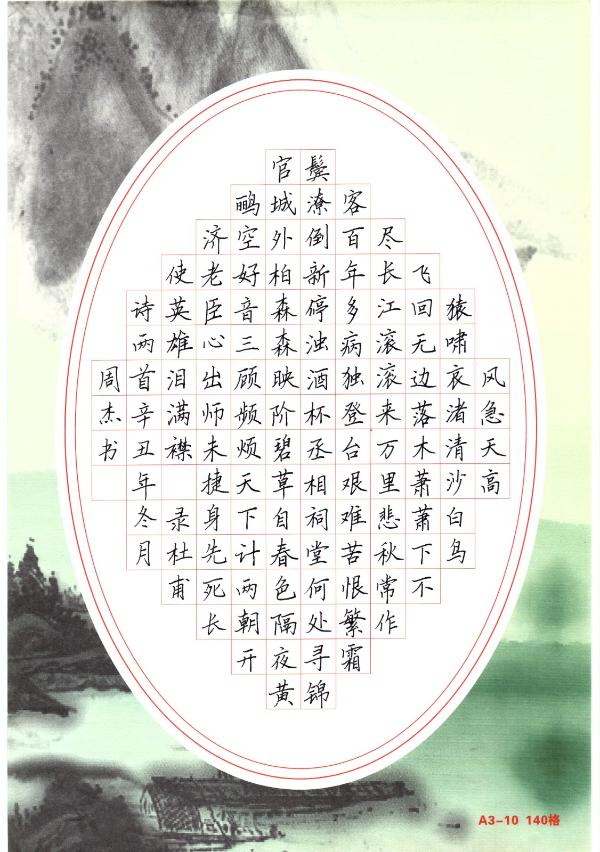 风急天高
猿啸哀渚清沙白鸟
飞回无边落木萧萧下不
尽长江滚滚来万里悲秋常作
客百年多病独登台艰难苦恨繁霜
鬓潦倒新停浊酒杯丞相祠堂何处寻锦
官城外柏森森映阶碧草自春色隔夜黄
鹂空好音三顾频烦天下计两朝开
济老臣心出师未捷身先死长
使英雄泪满襟 录杜甫
诗两首辛丑年冬月
周杰书
A3-10 140格